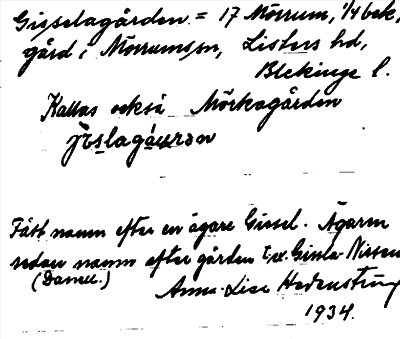 Gisselagården = 17 Mörrum, 1/4 bek.
gård i Mörrums sn, Listers hd,
Blekinge l.
Kallas också Mörkagården
jɪslagá̱uʀən
Fått namn efter en ägare Gissel. Ägaren
sedan namn efter gården t.ex. Gissla-Nissen
(Danell.)
Anna-Lisa Hedenström
1934.